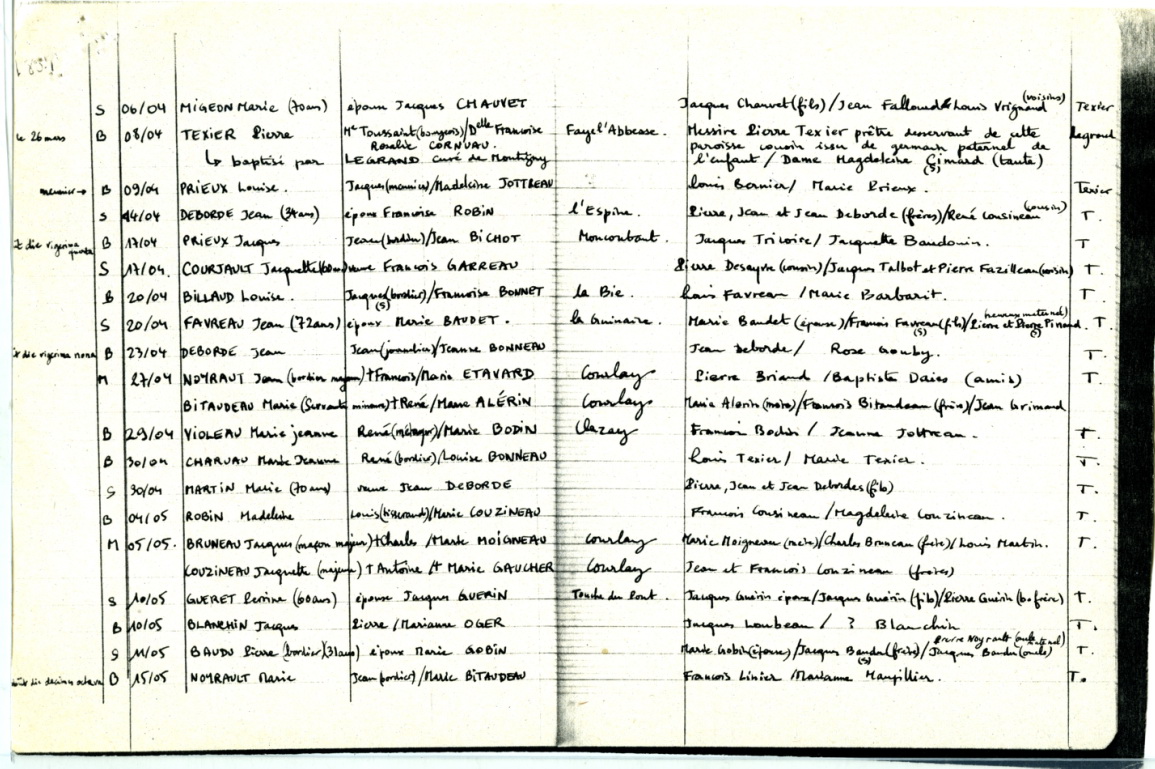 S 06/04 MIGEON Marie (70ans) épouse Jacques CHAUVET Jacques Chauvet (fils) / Jean Falloud & Louis Vrignaud (voisins) Texier
le 26 mars B 08/04 TEXIER Pierre Mr Toussaint (bourgeois) / Delle Françoise Rosalie CORNUAU. Faye l'Abbesse. Messire Pierre Texier prêtre desservant de cette Legrand
paroisse cousin issu de germain paternel de
↳ baptisé par LEGRAND curé de Montigny l'enfant / Dame Magdeleine Gimard (tante) (s)
meunier → B 09/04 PRIEUX Louise. Jacques (meunier) / Madeleine JOTTREAU Louis Bernier / Marie Prieux. Texier
S 14/04 DEBORDE Jean (34ans) époux Françoise ROBIN l'Espine. Pierre, Jean et Jean Deborde (frères) / René Cousineau (cousin) T.
B 17/04 PRIEUX Jacques Jean (bordier) / Jean BICHOT Moncoutant. Jacques Tricoire / Jacquette Baudouin. T
S 17/04. COURJAULT Jacquette (60ans) veuve François GARREAU Pierre Desayre (cousin) / Jacques Talbot et Pierre Fazilleau (voisins) T.
B 20/04 BILLAUD Louise. Jacques (bordier) / Françoise BONNET (s) la Bie. Louis Favreau / Marie Barbarit. T.
S 20/04 FAVREAU Jean (72ans) époux Marie BAUDET. la Guinaire. Marie Baudet (épouse) / François Favreau (fils) (s) / Pierre et Pierre Pinaud (s) (neveux maternel). T.
die vigesima nona B 23/04 DEBORDE Jean Jean (journalier) / Jeanne BONNEAU Jean Deborde / Rose Gouby. T.
M 27/04 NOYRAUT Jean (bordier majeur) † François / Marie ETAVARD Courlay Pierre Briand / Baptiste Daies (amis) T.
BITAUDEAU Marie (Servante mineure) † René / Marie ALÉRIN Courlay Marie Alerin (mère) / François Bitaudeau (frère) / Jean Grimaud
B 29/04 VIOLEAU Marie jeanne René (métayer) / Marie BODIN Clazay François Bodin / Jeanne Jottreau. T.
B 30/04 CHARUAU Marie Jeanne René (bordier) / Louise BONNEAU Louis Texier / Marie Texier. T.
S 30/04 MARTIN Marie (70 ans) veuve Jean DEBORDE Pierre, Jean et Jean Debordes (fils) T.
B 04/05 ROBIN Madeleine Louis (tisserand) / Marie COUZINEAU François Cousineau / Magdeleine Couzineau. T.
M 05/05. BRUNEAU Jacques (maçon majeur) † Charles / Marie MOIGNEAU Courlay Marie Moigneau (mère) / Charles Bruneau (frère) / Louis Martin. T.
COUZINEAU Jacquette (majeure) † Antoine / † Marie GAUCHER Courlay Jean et François Couzineau (frères)
S 10/05 GUERET Perrine (60ans) épouse Jacques GUERIN Touche du Pont. Jacques Guérin époux / Jacques Guérin (fils) / Pierre Guérin (b. frère) T.
B 10/05 BLANCHIN Jacques Pierre / Marianne OGER Jacques Loubeau / ? Blanchin T.
S 11/05 BAUDU Pierre (bordier) (31ans) époux Marie GOBIN Marie Gobin (épouse) / Jacques Baudu (frère) (s) / Jacques Baudu (oncle) Pierre Noyrault (oncle maternel) T.
die decima octava B 15/05 NOYRAULT Marie Jean (bordier) / Marie BITAUDEAU François Linier / Marianne Maupillier. T.